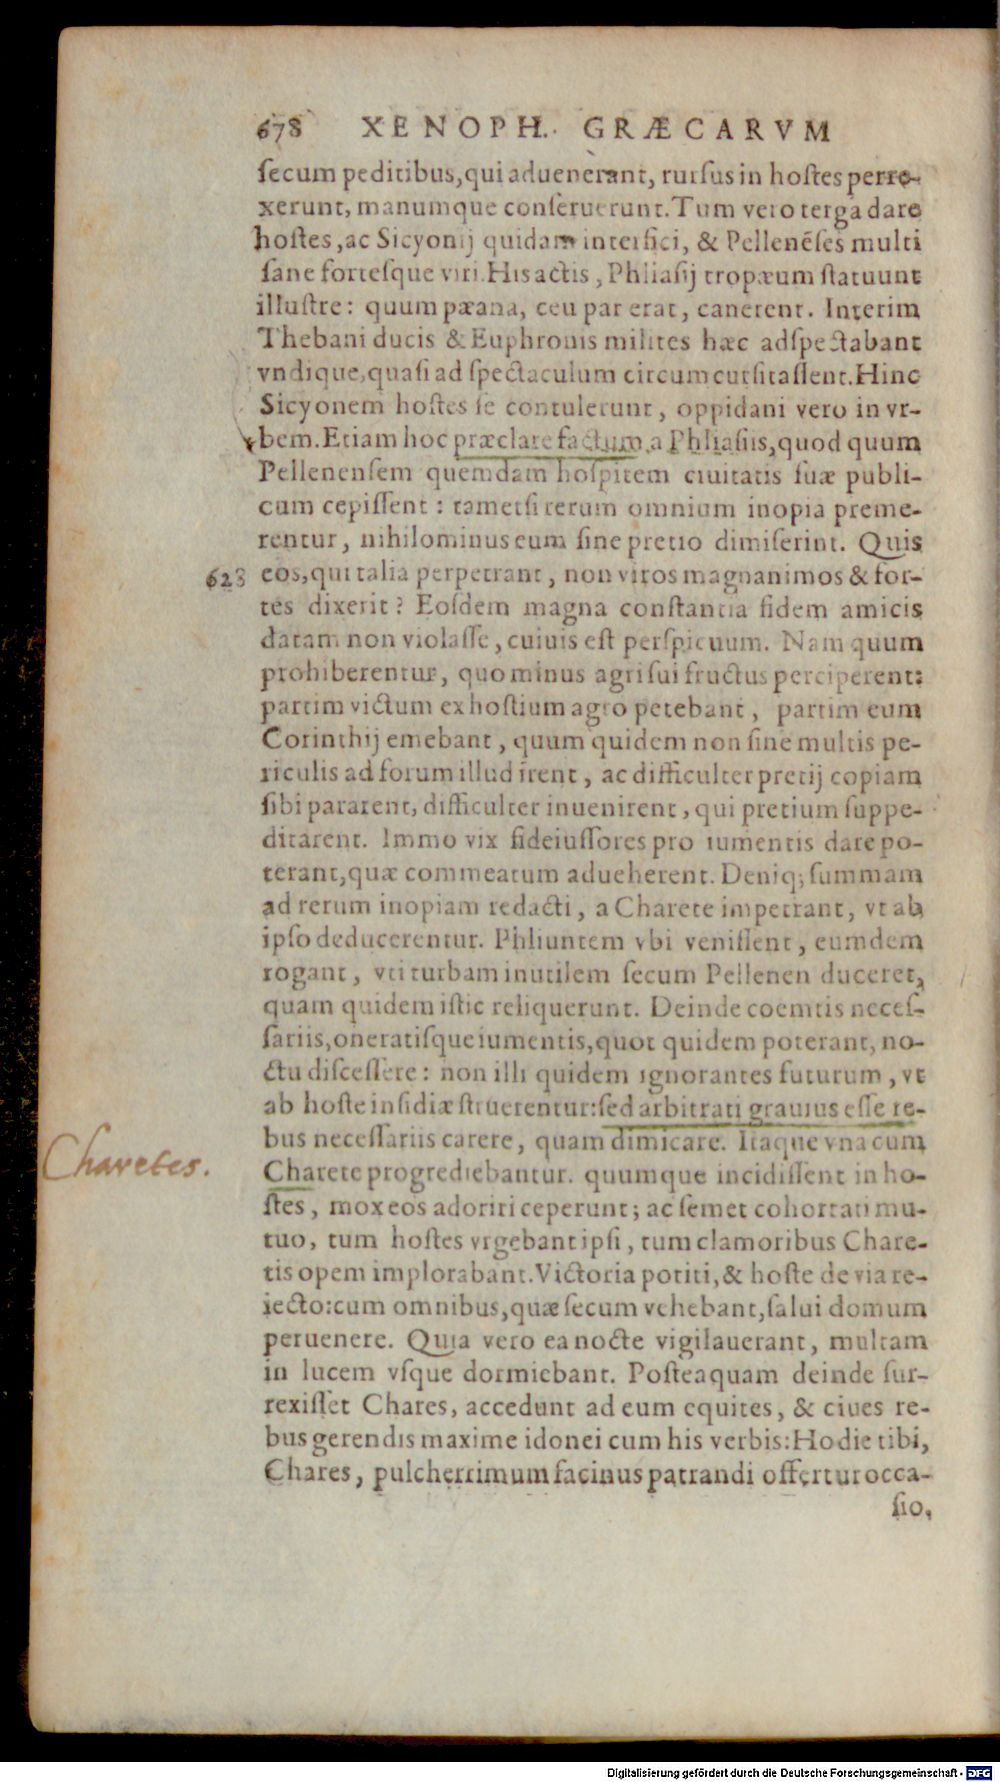 678 XENOPH. GRÆCARVM
ſecum peditibus, qui aduenerant, rurſus in hoſtes perre-
xerunt, manumque conſeruerunt. Tum vero terga dare
hoſtes, ac Sicyonij quidam interfici, & Pellenēſes multi
ſane forteſque viri. His actis, Phliaſij tropæum ſtatuunt
illuſtre: quum pæana, ceu par erat, canerent. Interim
Thebani ducis & Euphronis milites hæc adſpectabant
vndique, quaſi ad ſpectaculum circumcurſitaſſent. Hinc
Sicyonem hoſtes ſe contulerunt, oppidani vero in vr-
bem. Etiam hoc præclare factum a Phliaſiis, quod quum
Pellenenſem quemdam hoſpitem ciuitatis ſuæ publi-
cum cepiſſent: tametſi rerum omnium inopia preme-
rentur, nihilominus eum ſine pretio dimiſerint. Quis
623 eos, qui talia perpetrant, non viros magnanimos & for-
tes dixerit? Eoſdem magna conſtantia fidem amicis
datam non violaſſe, cuiuis eſt perſpicuum. Nam quum
prohiberentur, quo minus agri ſui fructus perciperent:
partim victum ex hoſtium agro petebant, partim eum
Corinthij emebant, quum quidem non ſine multis pe-
riculis ad forum illud irent, ac difficulter pretij copiam
ſibi pararent, difficulter inuenirent, qui pretium ſuppe-
ditarent. Immo vix fideiuſſores pro iumentis dare po-
terant, quæ commeatum adueherent. Deniq; ſummam
ad rerum inopiam redacti, a Charete impetrant, vt ab
ipſo deducerentur. Phliuntem vbi veniſſent, eumdem
rogant, vti turbam inutilem ſecum Pellenen duceret,
quam quidem iſtic reliquerunt. Deinde coemtis neceſ-
ſariis, oneratiſque iumentis, quot quidem poterant, no-
ctu diſceſſere: non illi quidem ignorantes futurum, vt
ab hoſte inſidiæ ſtruerentur: ſed arbitrati grauius eſſe re-
bus neceſſariis carere, quam dimicare. Itaque vna cum
Charetes.
Charete progrediebantur. quumque incidiſſent in ho-
ſtes, mox eos adoriri ceperunt; ac ſemet cohortati mu-
tuo, tum hoſtes vrgebant ipſi, tum clamoribus Chare-
tis opem implorabant. Victoria potiti, & hoſte de via re-
iecto: cum omnibus, quæ ſecum vehebant, ſalui domum
peruenere. Quia vero ea nocte vigilauerant, multam
in lucem vſque dormiebant. Poſteaquam deinde ſur-
rexiſſet Chares, accedunt ad eum equites, & ciues re-
bus gerendis maxime idonei cum his verbis: Hodie tibi,
Chares, pulcherrimum facinus patrandi offertur occa-
ſio,
Digitalisierung gefördert durch die Deutsche Forschungsgemeinschaft - DFG